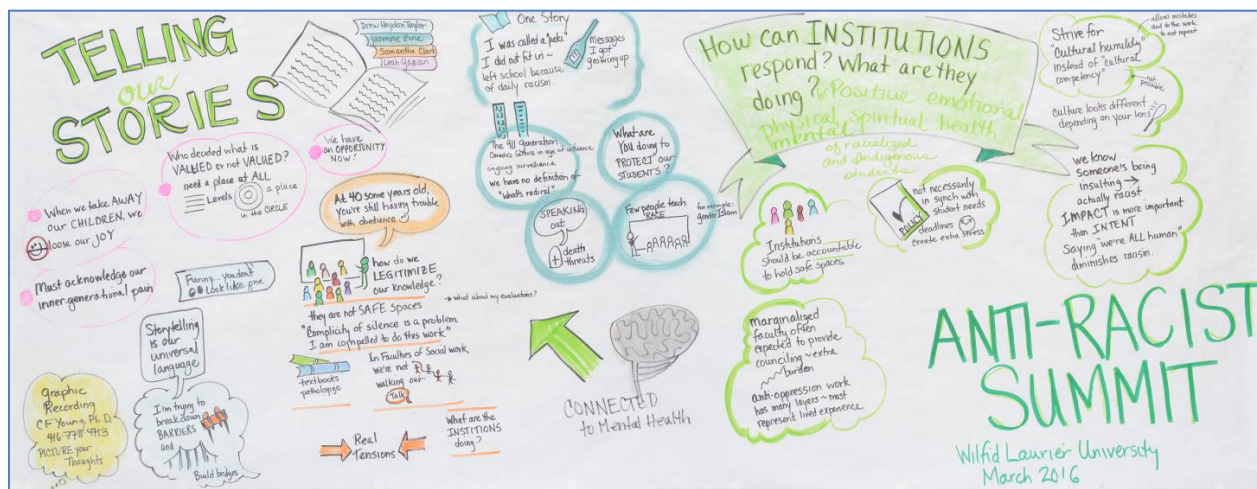 TELLING
our
STORIES
Drew Hayden Taylor
Jasmine Zine
Samantha Clark
Leah Gazan
Who decided what is
VALUED or not VALUED?
need a place at ALL
Levels
a place
in the CIRCLE
We have
an OPPORTUNITY
NOW!
When we take AWAY
our CHILDREN, we
loose our JOY
Must acknowledge our
inner-generational pain
Funny...you don't
Look like one
Storytelling
is our
universal
language
Graphic
Recording
CF Young, Ph.D.
416-778-4713
PICTURE your
Thoughts
I'm trying to
break down
BARRIERS
and
Build bridges
At 40 some years old,
you're still having trouble
with obedience
how do we
LEGITIMIZE
our knowledge?
they are not SAFE spaces
what about my evaluations?
"Complicity of silence is a problem
I am compelled to do this work"
text books
pathologize
In Faculties of Social work,
we're not
walking our
Talk
Real
Tensions
What are the
INSTITIONS
doing?
One Story
I was called a "paki"
I did not fit in ~
left school because
of daily racism.
Messages
I got
growing up
The 911 generation
Canada's culture in age of influence
ongoing surveillance
we have no definition of
"what's radical"
What are
YOU doing to
PROTECT our
STUDENTS?
SPEAKING
out
death
threats
Few people teach
RACE
for example:
gender Islam
CONNECTED
to Mental Health
How can INSTITUTIONS
respond? What are they
doing?
for Positive emotional
physical, spiritual health
mental
of racialized
and Indigenous
students
Institutions
should be accountable
to hold safe spaces
POLICY
not necessarily
in synch with
student needs
deadlines
create extra stress
marginalised
faculty often
expected to provide
counciling ~ extra
burden
anti-oppression work
has many layers ~ most
represent lived experience
Strive for
"Cultural humility"
instead of "cultural
competency"
allows mistakes
and do the work
to not repeat
not
possible
Culture looks different
depending on your lens
we know
someone's being
insulting →
actually racist
IMPACT is more important
than INTENT
Saying "we're ALL human"
diminishes racism.
ANTI-RACIST
SUMMIT
Wilfid Laurier University
March 2016